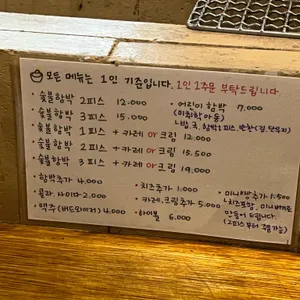 모든 메뉴는 1인 기준입니다. 1인 1주문 부탁드립니다
· 숯불함박 2피스 12.000
· 숯불함박 3피스 15.000
· 숯불함박 1피스 + 카레 or 크림 12.000
· 숯불함박 2피스 + 카레 or 크림 15.500
· 숯불함박 3피스 + 카레 or 크림 19.000
· 어린이 함박 7.000
(미취학아동)
밥, 국, 함박 1피스, 반찬(김, 단무지)
· 함박추가 4.000
· 콜라, 사이다 2.000
· 맥주(버드와이저) 4.000
· 치즈추가 1.000
· 카레, 크림추가 5.000
· 하이볼 6.000
· 미니빵추가 1.500
만들어 드립니다.
(2피스부터 주문가능)